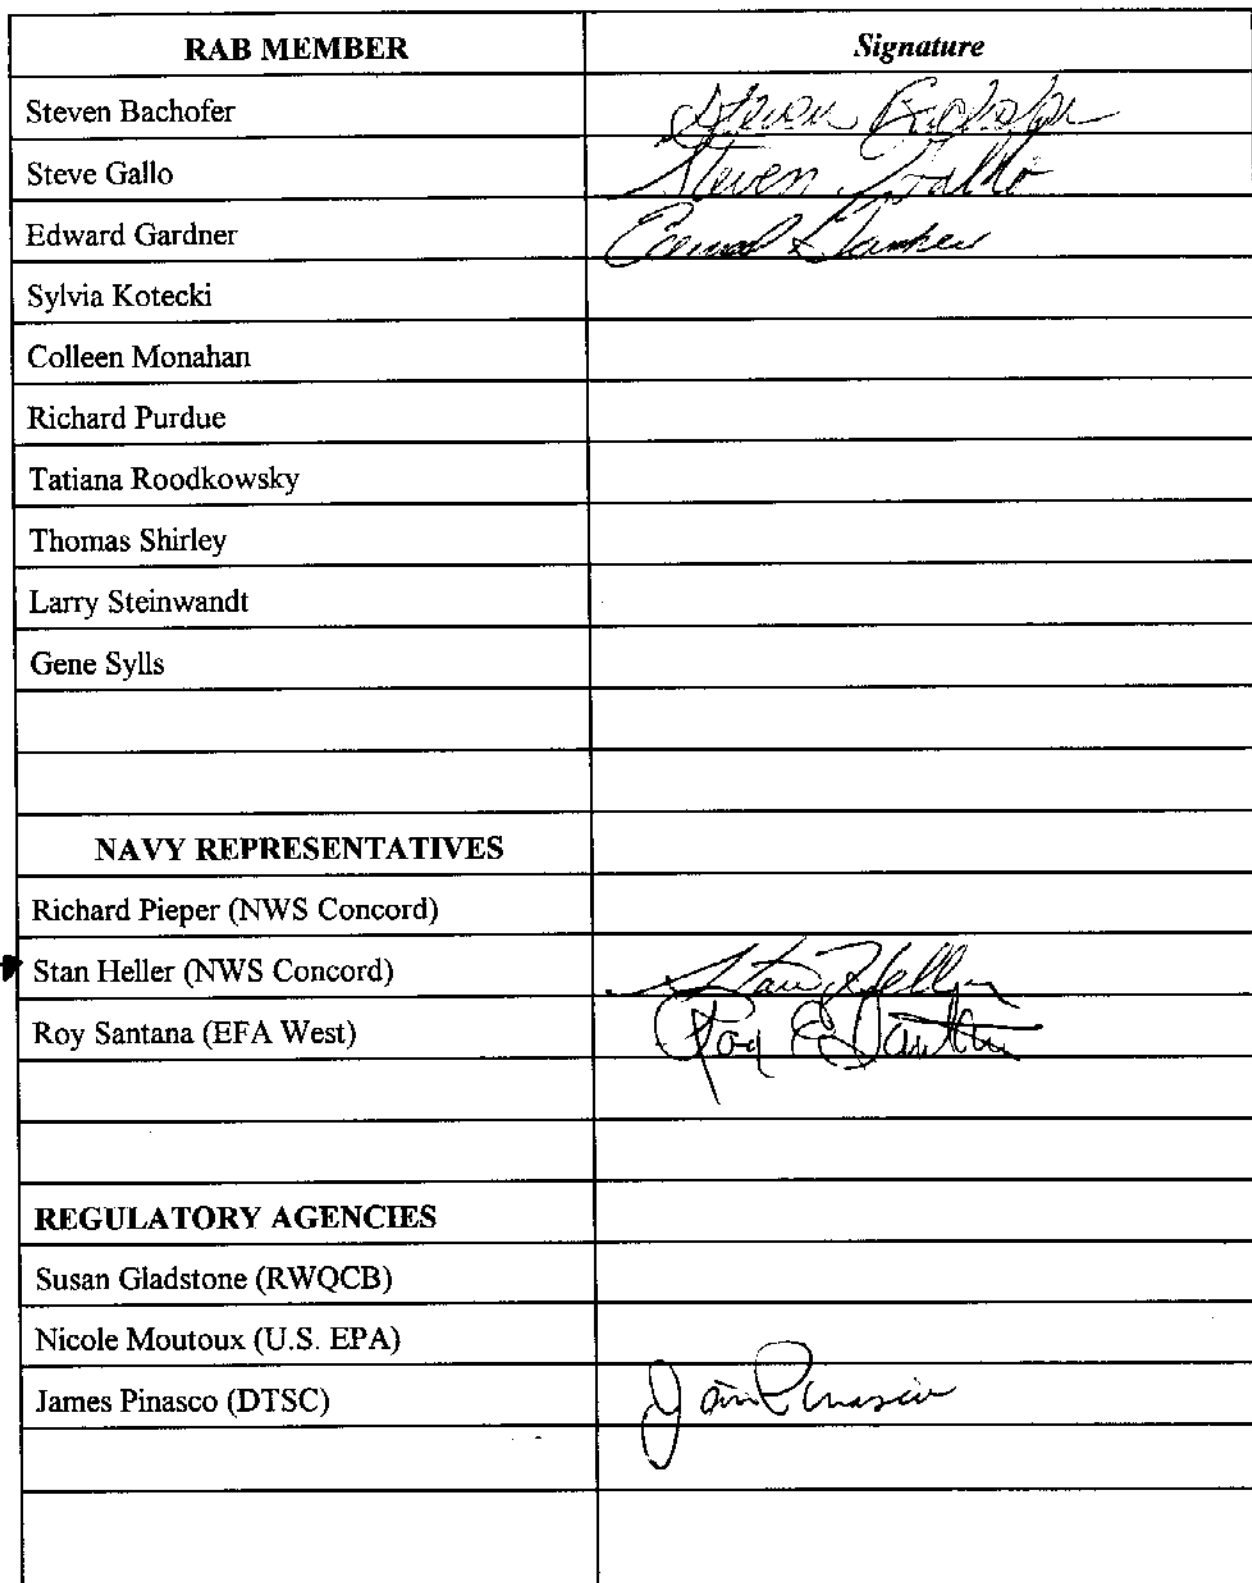 RAB MEMBER Signature
Steven Bachofer Steven Bachofer
Steve Gallo Steven Gallo
Edward Gardner
Sylvia Kotecki
Colleen Monahan
Richard Purdue
Tatiana Roodkowsky
Thomas Shirley
Larry Steinwandt
Gene Sylls
NAVY REPRESENTATIVES
Richard Pieper (NWS Concord)
Stan Heller (NWS Concord) Stan Heller
Roy Santana (EFA West) Roy E Santana
REGULATORY AGENCIES
Susan Gladstone (RWQCB)
Nicole Moutoux (U.S. EPA)
James Pinasco (DTSC) Jim Pinasco